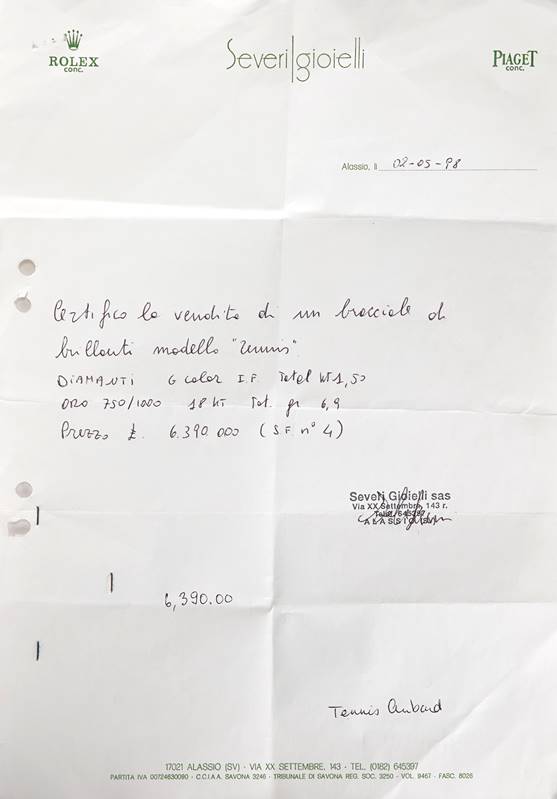 ROLEX
conc.
Severi gioielli
PIAGET
conc.
Alassio, li 02-05-98
Certifico la vendita di un bracciale di
brillanti modello "Tennis"
DIAMANTI G color I.F. Total KT 1,50
ORO 750/1000 18 KT Tot. gr 6,9
Prezzo £. 6.390.000 (S.F. n° 4)
Severi Gioielli sas
Via XX Settembre, 143 r.
ALASSIO
6,390.00
Tennis
17021 ALASSIO (SV) - VIA XX SETTEMBRE, 143 - TEL. (0182) 645397
PARTITA IVA 00724630090 - C.C.I.A.A. SAVONA 3246 - TRIBUNALE DI SAVONA REG. SOC. 3250 - VOL. 9467 - FASC. 8026